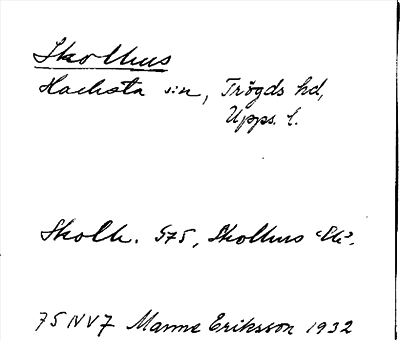 Skolhus
Hacksta sn, Trögds hd,
Upps. l.
Skolh. 575, Skolhus
75 NV 7 Manne Eriksson 1932